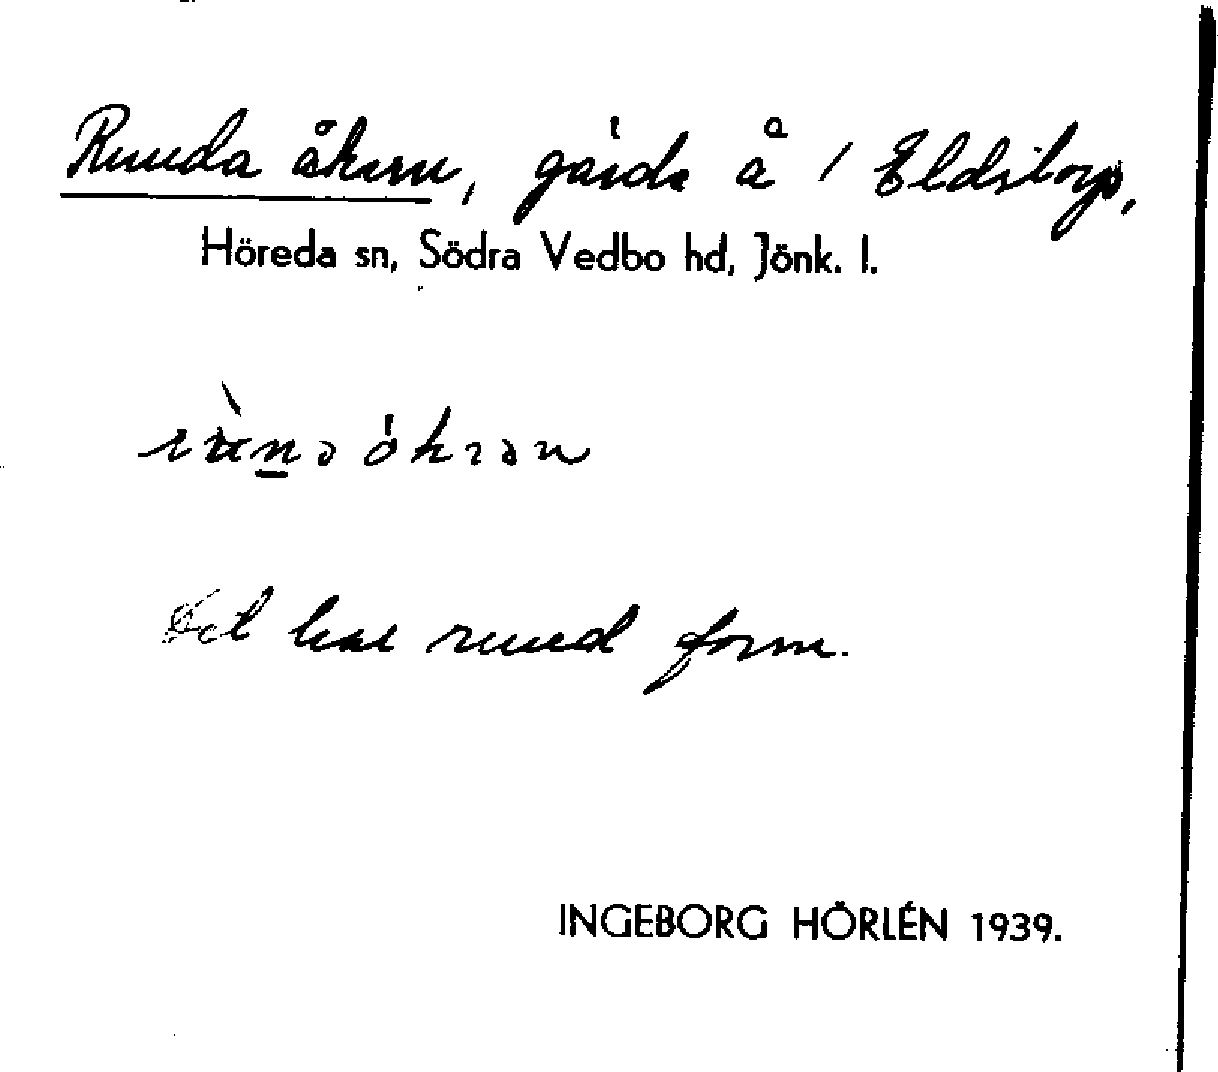 Runda åkern, gärde å 1 Eldstorp,
Höreda sn, Södra Vedbo hd, Jönk. l.
Det har rund form.
INGEBORG HÖRLÉN 1939.